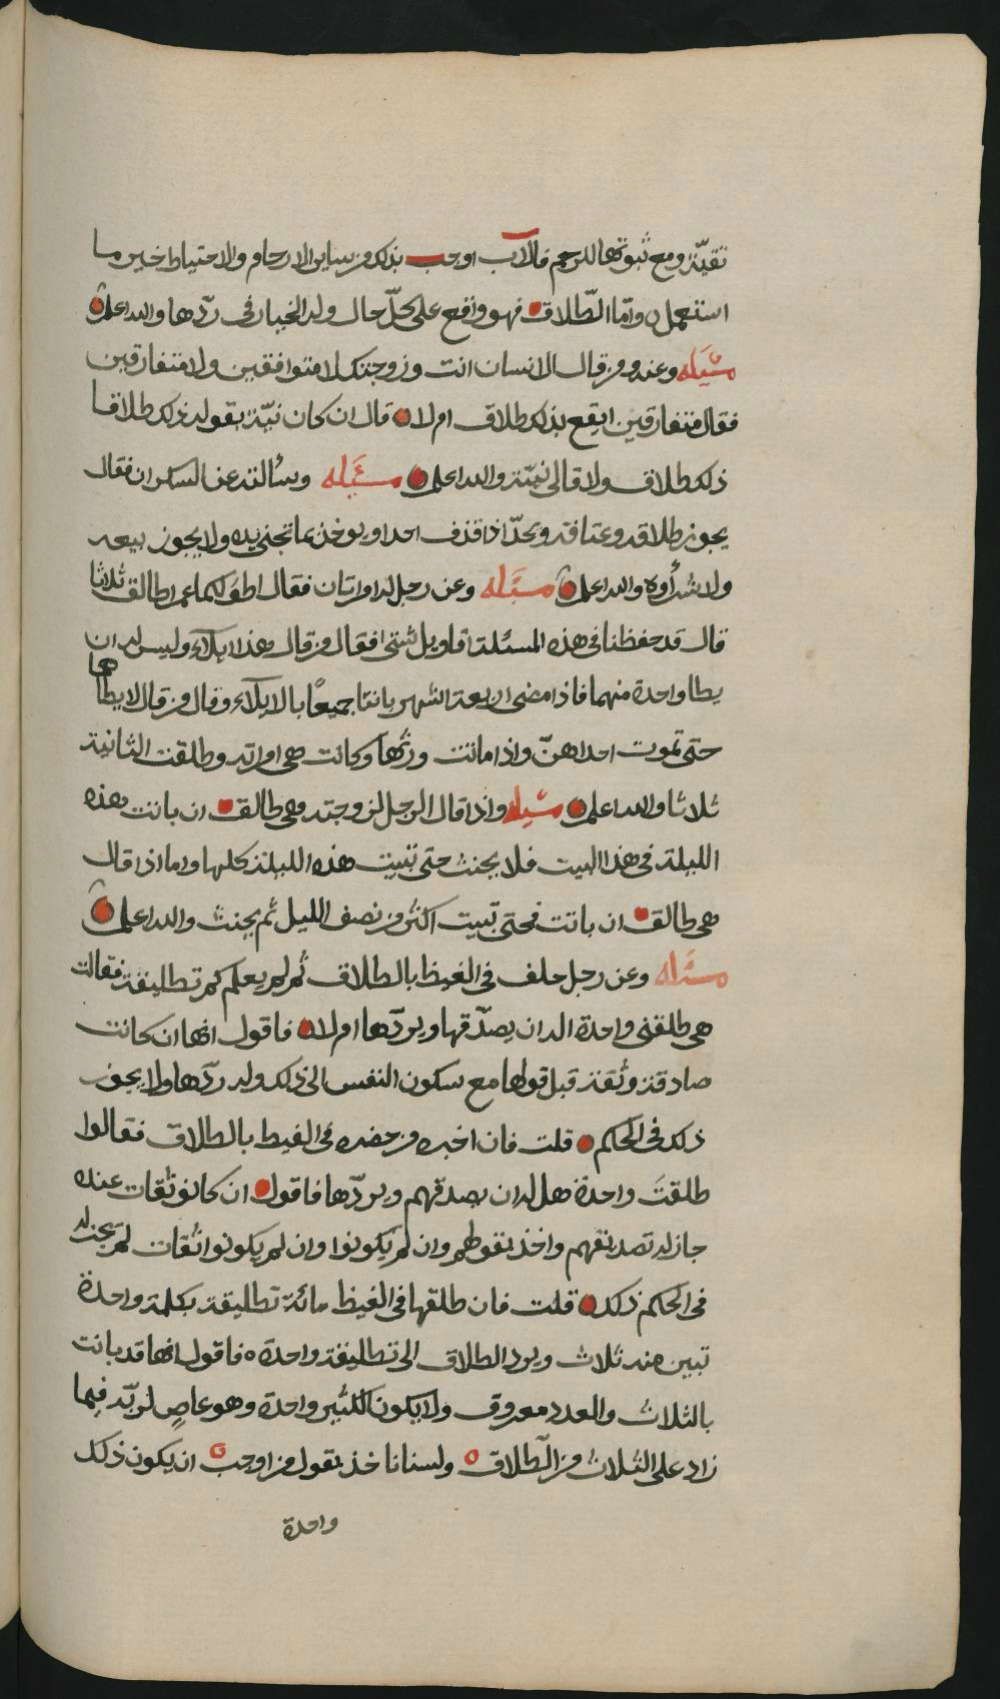 تقيّة ومع ثبوتها للرحم فالاب اوجب بذلك من ساير الارحام والاحتياط خير ما
استعمل وامّا الطّلاق فهو واقع على كلّ حال وله الخيار في ردّها والله اعلم
مسئله وعنه ومن قال الانسان انت وزوجتك لا متوافقين ولا متفارقين
فقال متفارقين ايقع بذلك طلاق ام لا قال ان كان نيّته بقوله ذلك طلاقا
ذلك طلاق ولا قالي نيّته والله اعلم مسئله وسألته عن السكران فقال
يجوز طلاقه وعتاقه ويحدّ اذا قذف احدا ويوخذ بما تجني يده ولا يجوز بيعه
ولا شرأوه والله اعلم مسئله وعن رجل له امراتان فقال اطؤلكما عمرا طالق ثلاثا
قال قد حفظنا في هذه المسئلة اقاويل شتى فقال من قال هذا ايلاء وليس له ان
يطا واحدة منهما فاذا مضى اربعة اشهر بانتا جميعًا بالايلاء وقال من قال لا يطاهما
حتى تموت احداهنّ واذا ماتت ورثها وكانت هي امراته وطلقت الثانية
ثلاثا والله اعلم مسئله واذا قال الرجل لزوجته وهي طالق ان باتت هذه
الليلة في هذا البيت فلا يحنث حتى تبيت هذه الليلة كلها واما اذا قال
هي طالق ان باتت فحتى تبيت اكثر من نصف الليل ثم يحنث والله اعلم
مسئله وعن رجل حلف في الغيظ بالطلاق ثم لم يعلم كم تطليقة فقالت
هي طلقني واحدة اله ان يصدّقها ويردّها ام لا فاقول انها ان كانت
صادقة وثقة قبل قولها مع سكون النفس الى ذلك وله ردّها ولا يجوز
ذلك في الحكم قلت فان اخبره من حضره في الغيظ بالطلاق فقالوا
طلقتَ واحدة هل له ان يصدقهم ويردّها فاقول ان كانو ثقات عنده
جاز له تصديقهم واخذ بقولهم وان لم يكونوا وان لم يكونوا ثقات لم يجز له
في الحكم ذلك قلت فان طلقها في الغيظ مائة تطليقة بكلمة واحدة
تبين منه ثلاث ويرد الطلاق الى تطليقة واحدة فاقول انها قد بانت
بالثلاث والعدد معروف ولا يكون الكثير واحدة وهو عاصٍ لربّه فيما
زاد على الثلاث من الطّلاق ولسنا ناخذ بقول من اوجب ان يكون ذلك
واحدة